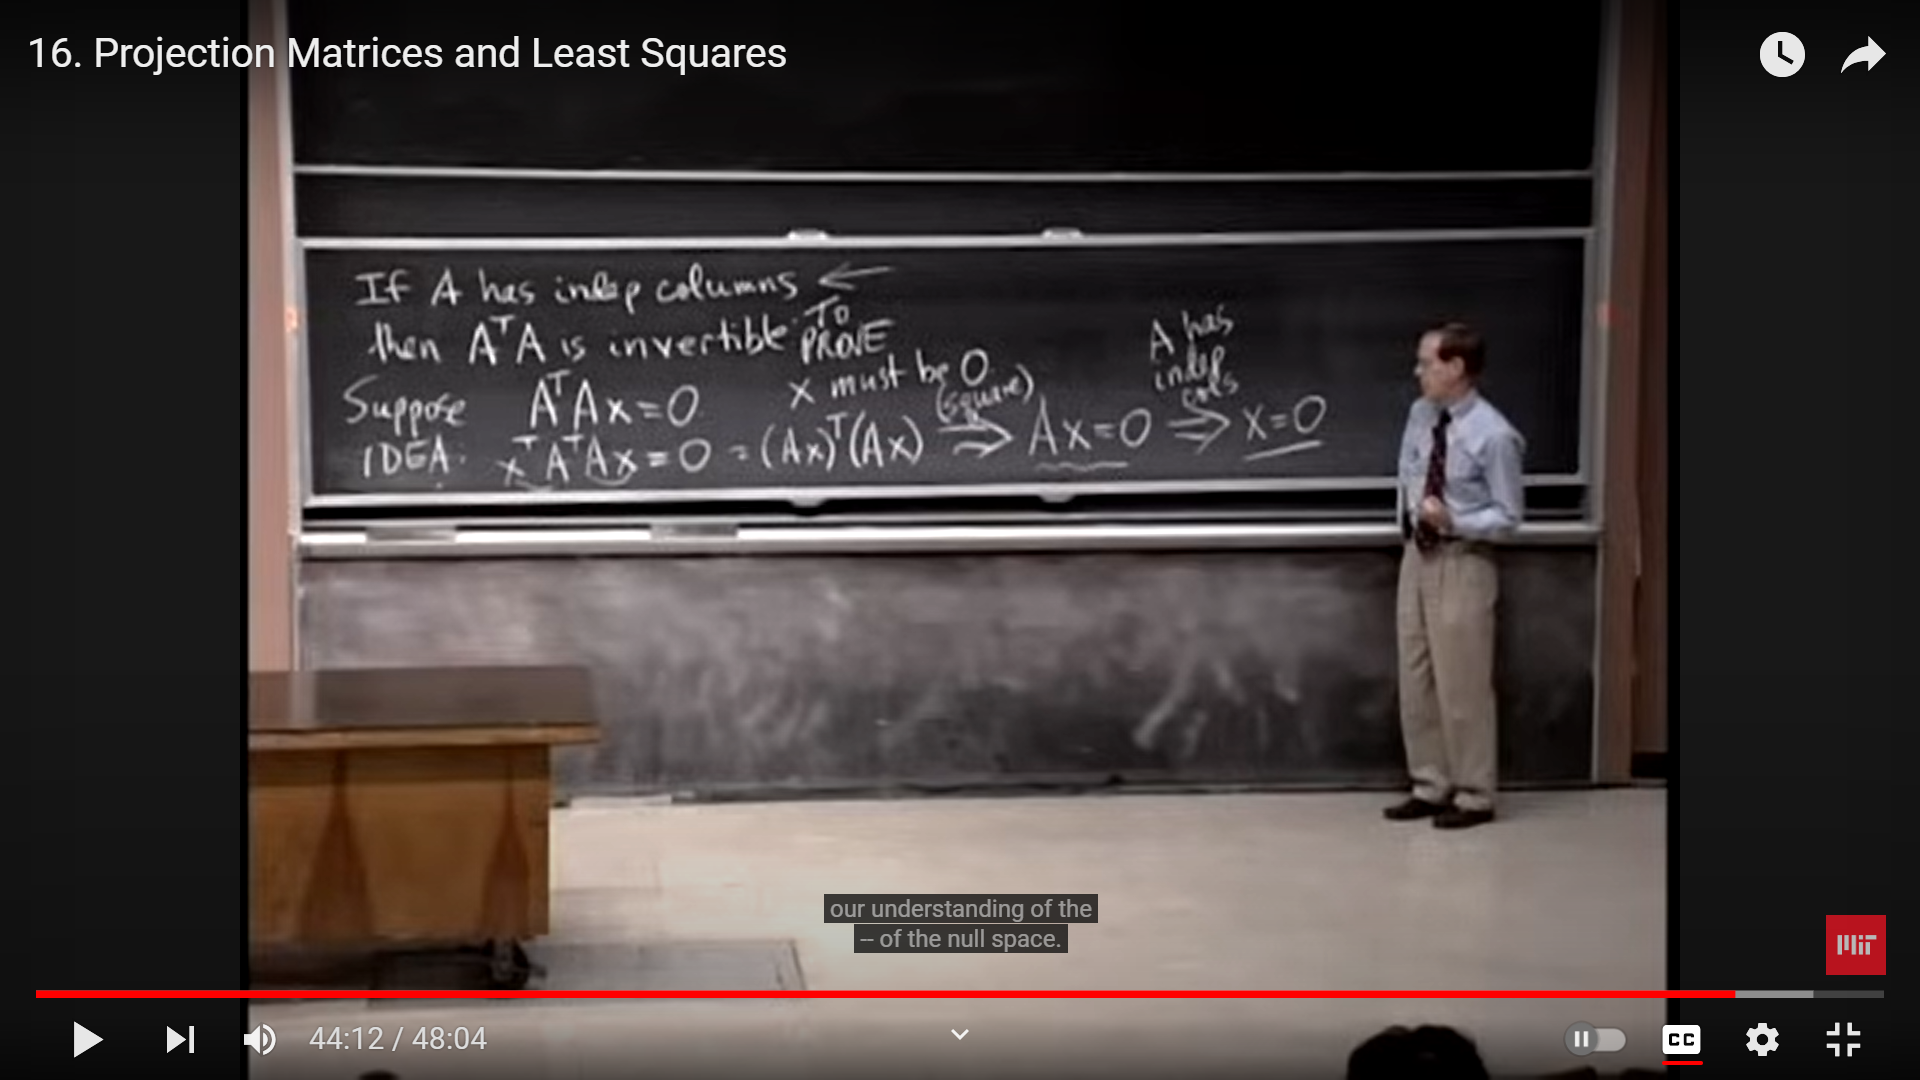 16. Projection Matrices and Least Squares
If A has indep columns ←
then AᵀA is invertible. TO PROVE
Suppose AᵀAx=0 x must be 0.
IDEA: xᵀAᵀAx = 0 = (Ax)ᵀ(Ax) ⇒ (square) Ax=0 ⇒ A has indep cols x=0
our understanding of the
-- of the null space.
MiT
44:12 / 48:04
CC